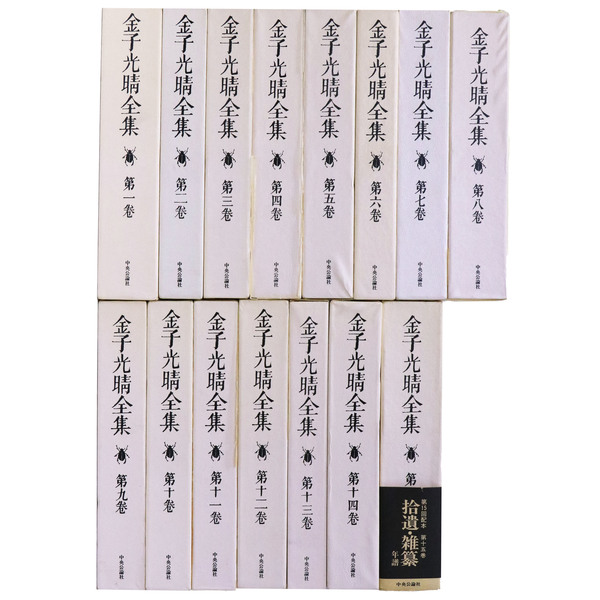 金子光晴全集
第一巻
中央公論社
金子光晴全集
第二巻
中央公論社
金子光晴全集
第三巻
中央公論社
金子光晴全集
第四巻
中央公論社
金子光晴全集
第五巻
中央公論社
金子光晴全集
第六巻
中央公論社
金子光晴全集
第七巻
中央公論社
金子光晴全集
第八巻
中央公論社
金子光晴全集
第九巻
中央公論社
金子光晴全集
第十巻
中央公論社
金子光晴全集
第十一巻
中央公論社
金子光晴全集
第十二巻
中央公論社
金子光晴全集
第十三巻
中央公論社
金子光晴全集
第十四巻
中央公論社
金子光晴全集
第
第15回配本 第十五巻
拾遺・雑纂
年譜
中央公論社